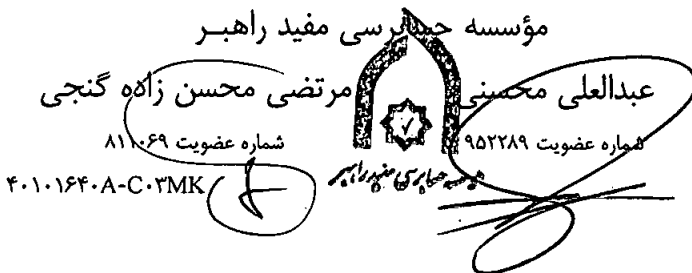 مؤسسه حسابرسی مفید راهبر
عبدالعلی محسنی مرتضی محسن زاده گنجی
شماره عضویت ۹۵۲۲۸۹ شماره عضویت ۸۱۱۰۶۹
موسسه حسابرسی مفید راهبر
۴۰۱۰۱۶۴۰A-C۰۳MK